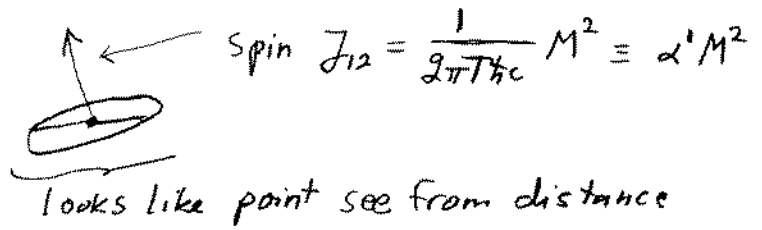 Spin J₁₂ = 1/(2πTħc) M² ≡ α' M²
looks like point see from distance